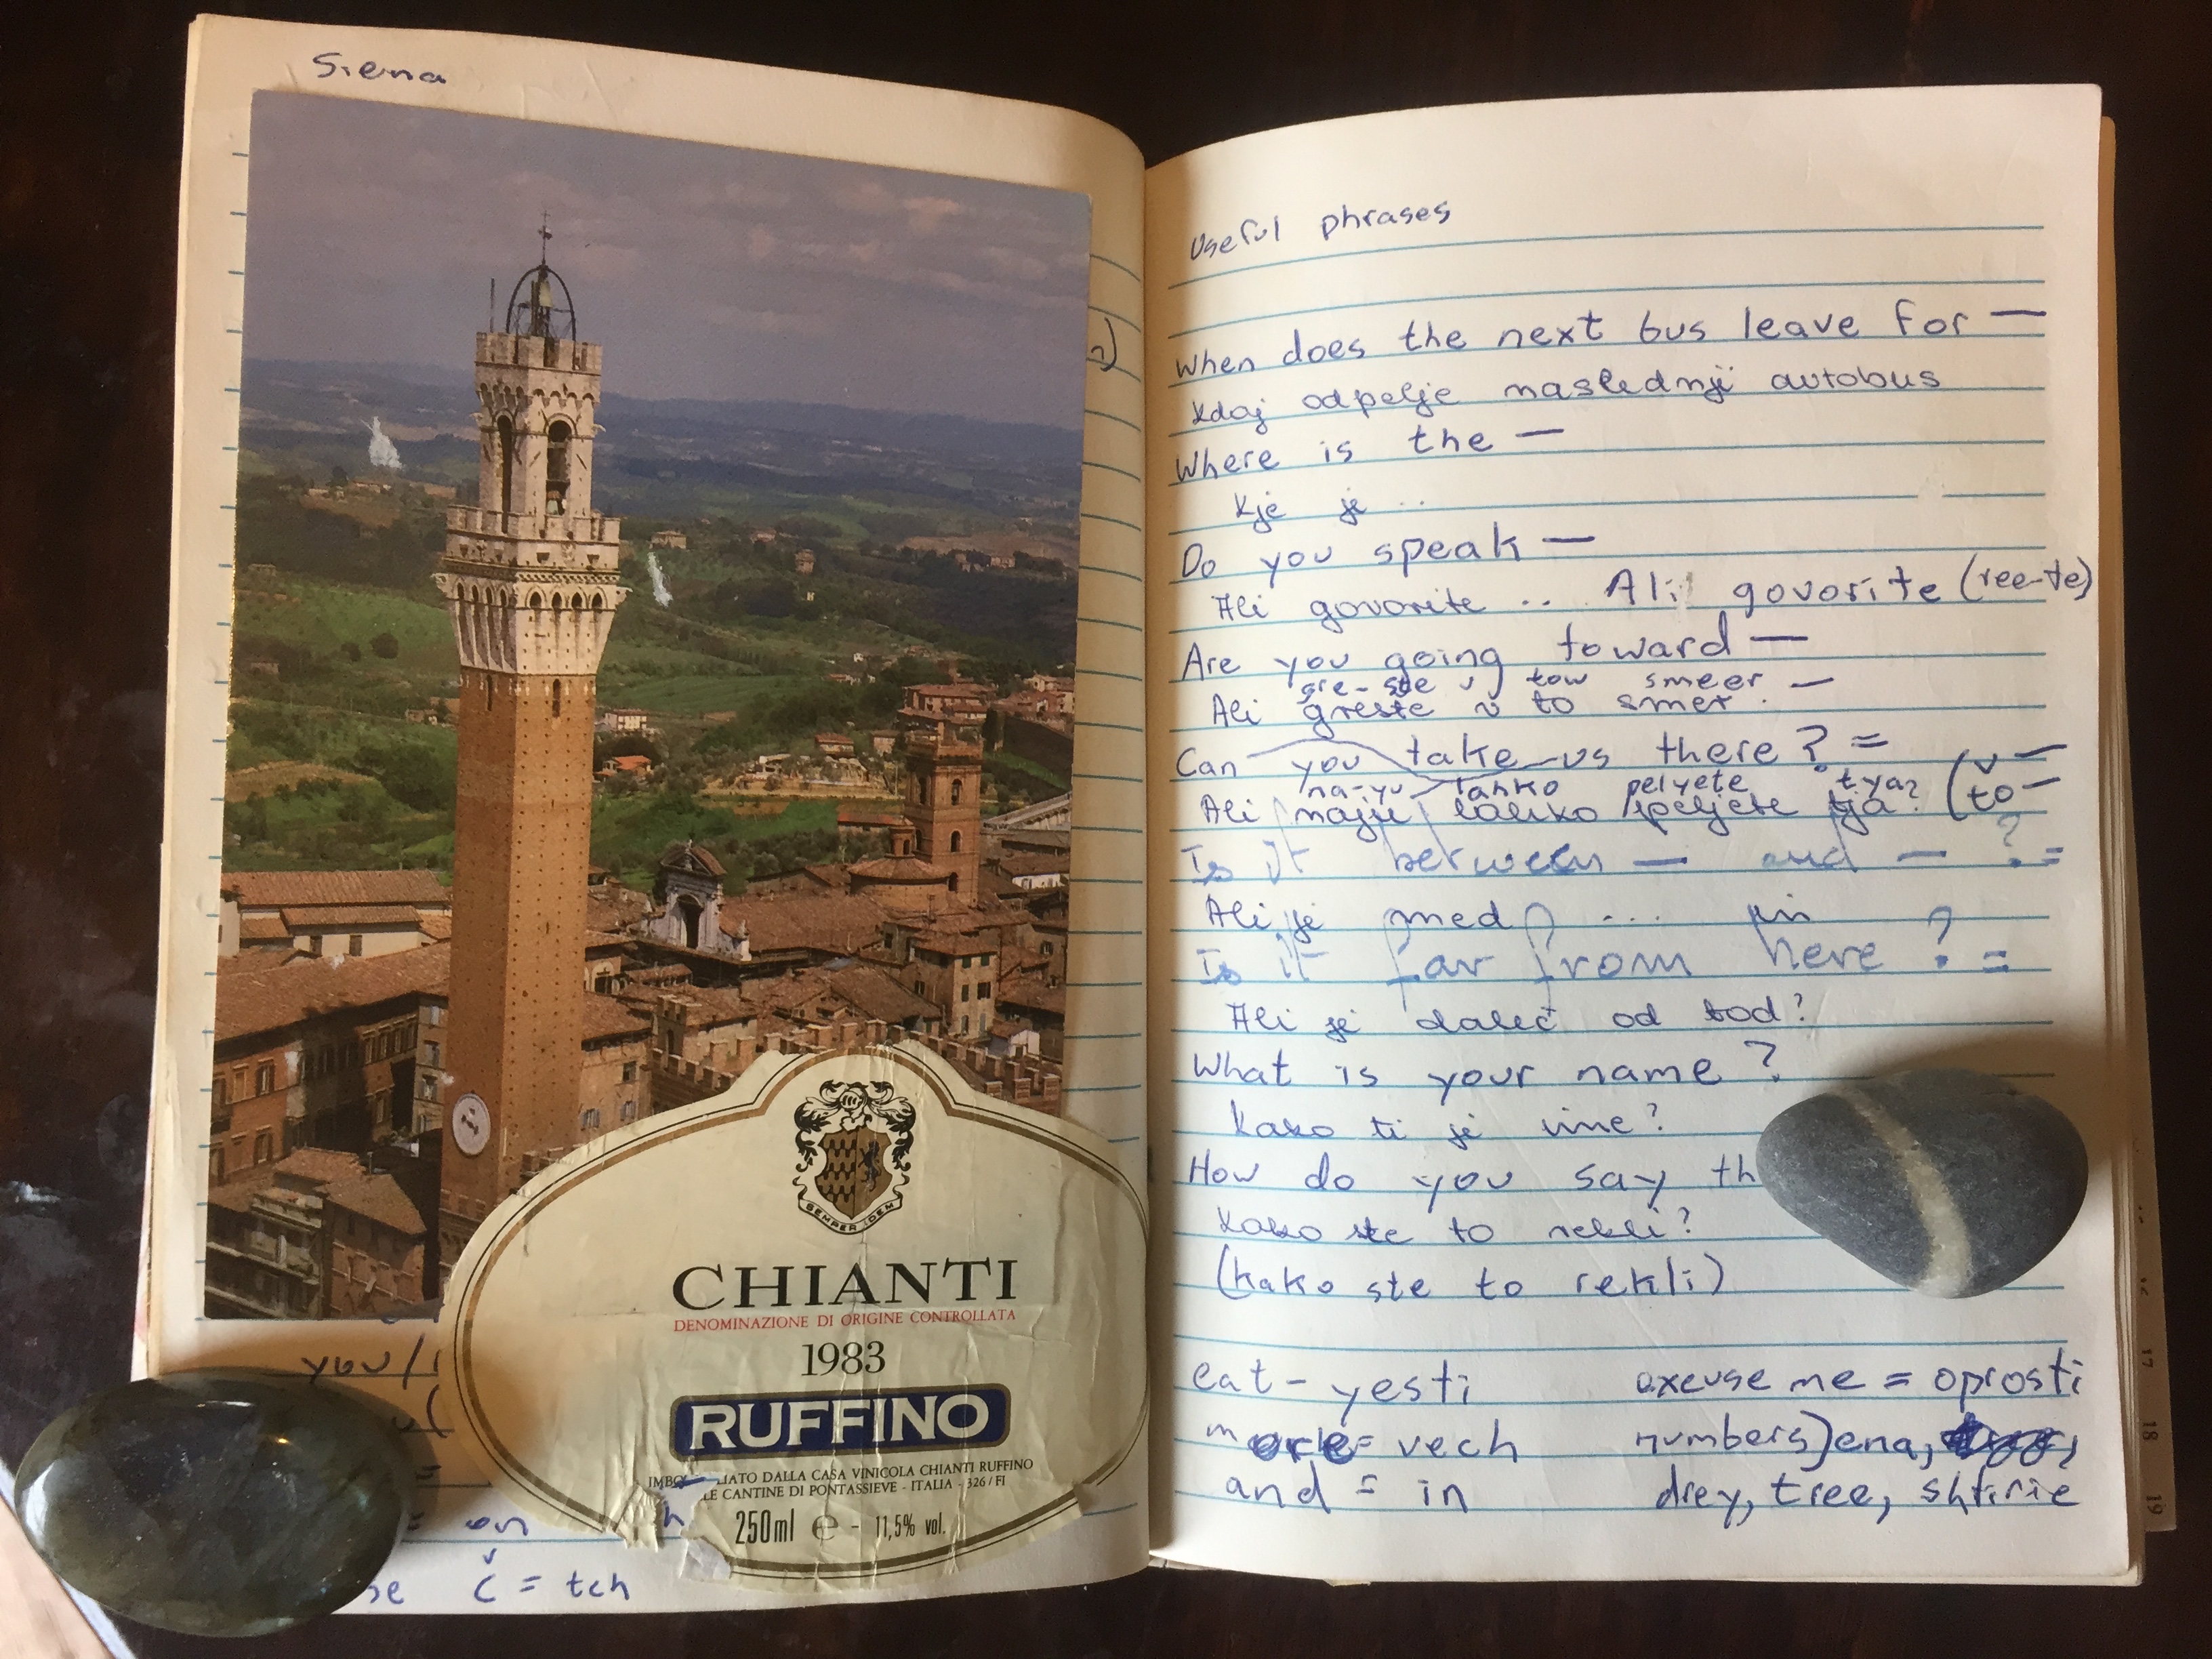 Siena
SEMPER IDEM
CHIANTI
DENOMINAZIONE DI ORIGINE CONTROLLATA
1983
RUFFINO
DALLA CASA VINICOLA CHIANTI RUFFINO
CANTINE DI PONTASSIEVE - ITALIA - 326 / FI
250 ml e - 11,5% vol.
you/
č = tch
Useful phrases
When does the next bus leave for —
Kdaj odpelje naslednji avtobus
Where is the —
Kje je ..
Do you speak —
Ali govorite .. Ali govorite (ree-te)
Are you going toward —
gre-ste v tow smeer —
Ali greste v to smer.
Can you take us there? =
na-yu lahko pelyete tya?
Ali naju lahko peljete tja? (to —
Is it between — and — ? =
Ali je med ... in
Is it far from here? =
Ali je daleč od tod?
What is your name?
Kako ti je ime?
How do you say th
Kako ste to rekli?
(kako ste to rekli)
eat - yesti excuse me = oprosti
more = vech numbers) ena,
and = in drey, tree, shtirie
17
18
19